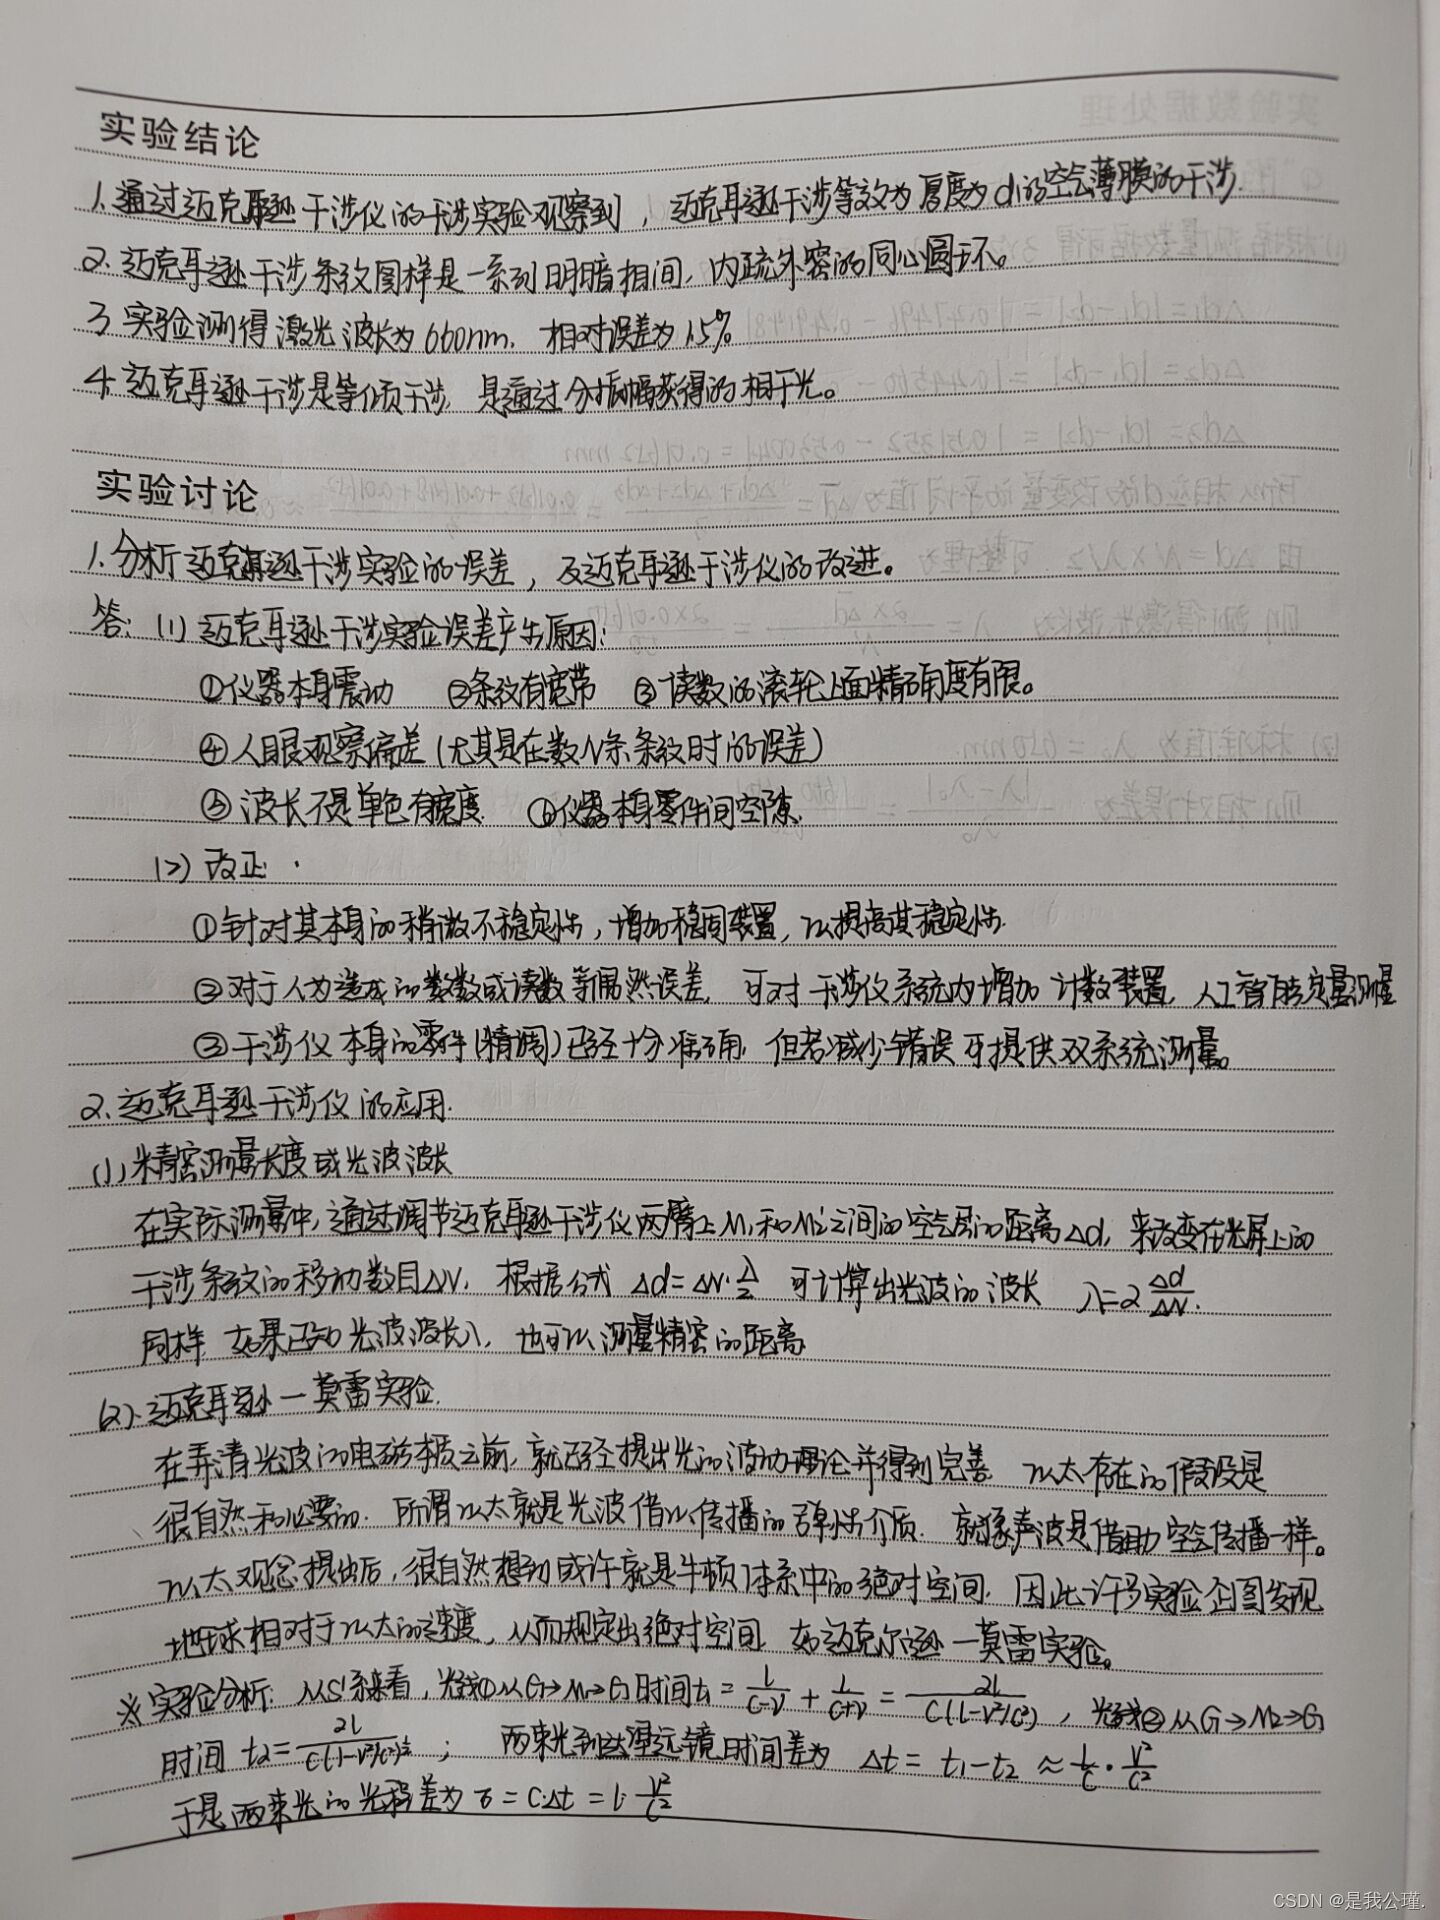 实验结论
1. 通过迈克耳逊干涉仪的干涉实验观察到，迈克耳逊干涉等效为厚度为d的空气薄膜的干涉.
2. 迈克耳逊干涉条纹图样是一系列明暗相间，内疏外密的同心圆环。
3. 实验测得激光波长为660nm. 相对误差为1.5%
4. 迈克耳逊干涉是等倾干涉. 是通过分振幅获得的相干光。
实验讨论
1. 分析迈克耳逊干涉实验的误差，及迈克耳逊干涉仪的改进。
答: (1) 迈克耳逊干涉实验误差产生原因:
①仪器本身震动 ②条纹有宽带 ③读数的滚轮上面精确度有限。
④人眼观察偏差(尤其是在数N条条纹时的误差)
⑤波长不是单色有宽度. ⑥仪器本身零件间空隙.
(2) 改正:
①针对其本身的稍微不稳定性，增加稳固装置，以提高其稳定性.
②对于人为造成的数数或读数等偶然误差. 可对干涉仪系统内增加计数装置，人工智能定量测量
③干涉仪本身的零件(精调)已经十分准确，但若减少错误可提供双系统测量。
2. 迈克耳逊干涉仪的应用.
(1) 精密测量长度或光波波长
在实际测量中，通过调节迈克耳逊干涉仪两臂上M₁和M₂'之间的空气层的距离Δd，来改变在光屏上的
干涉条纹的移动数目ΔN. 根据公式 Δd=ΔN·λ/2 可计算出光波的波长 λ=2Δd/ΔN.
同样 如果已知光波波长λ，也可以测量精密的距离
(2). 迈克耳逊—莫雷实验.
在弄清光波的电磁本质之前，就已经提出光的波动理论并得到完善. 以太存在的假设是
很自然和必要的. 所谓以太就是光波借以传播的弹性介质. 就像声波是借助空气传播一样。
以太观念提出后，很自然想到或许就是牛顿体系中的绝对空间. 因此许多实验企图发现
地球相对于以太的速度，从而规定出绝对空间. 如迈克尔逊—莫雷实验。
※实验分析: 从S'系来看，光线①从G→M₁→G时间t₁ = l/(c-v) + l/(c+v) = 2l/(c(1-v²/c²))，光线②从G→M₂→G
时间 t₂= 2l/(c(1-v²/c²)^½)； 两束光到达望远镜时间差为 Δt = t₁-t₂ ≈ l/c·v²/c²
于是，两束光的光程差为 δ = c·Δt = l·v²/c²
CSDN @是我公瑾.